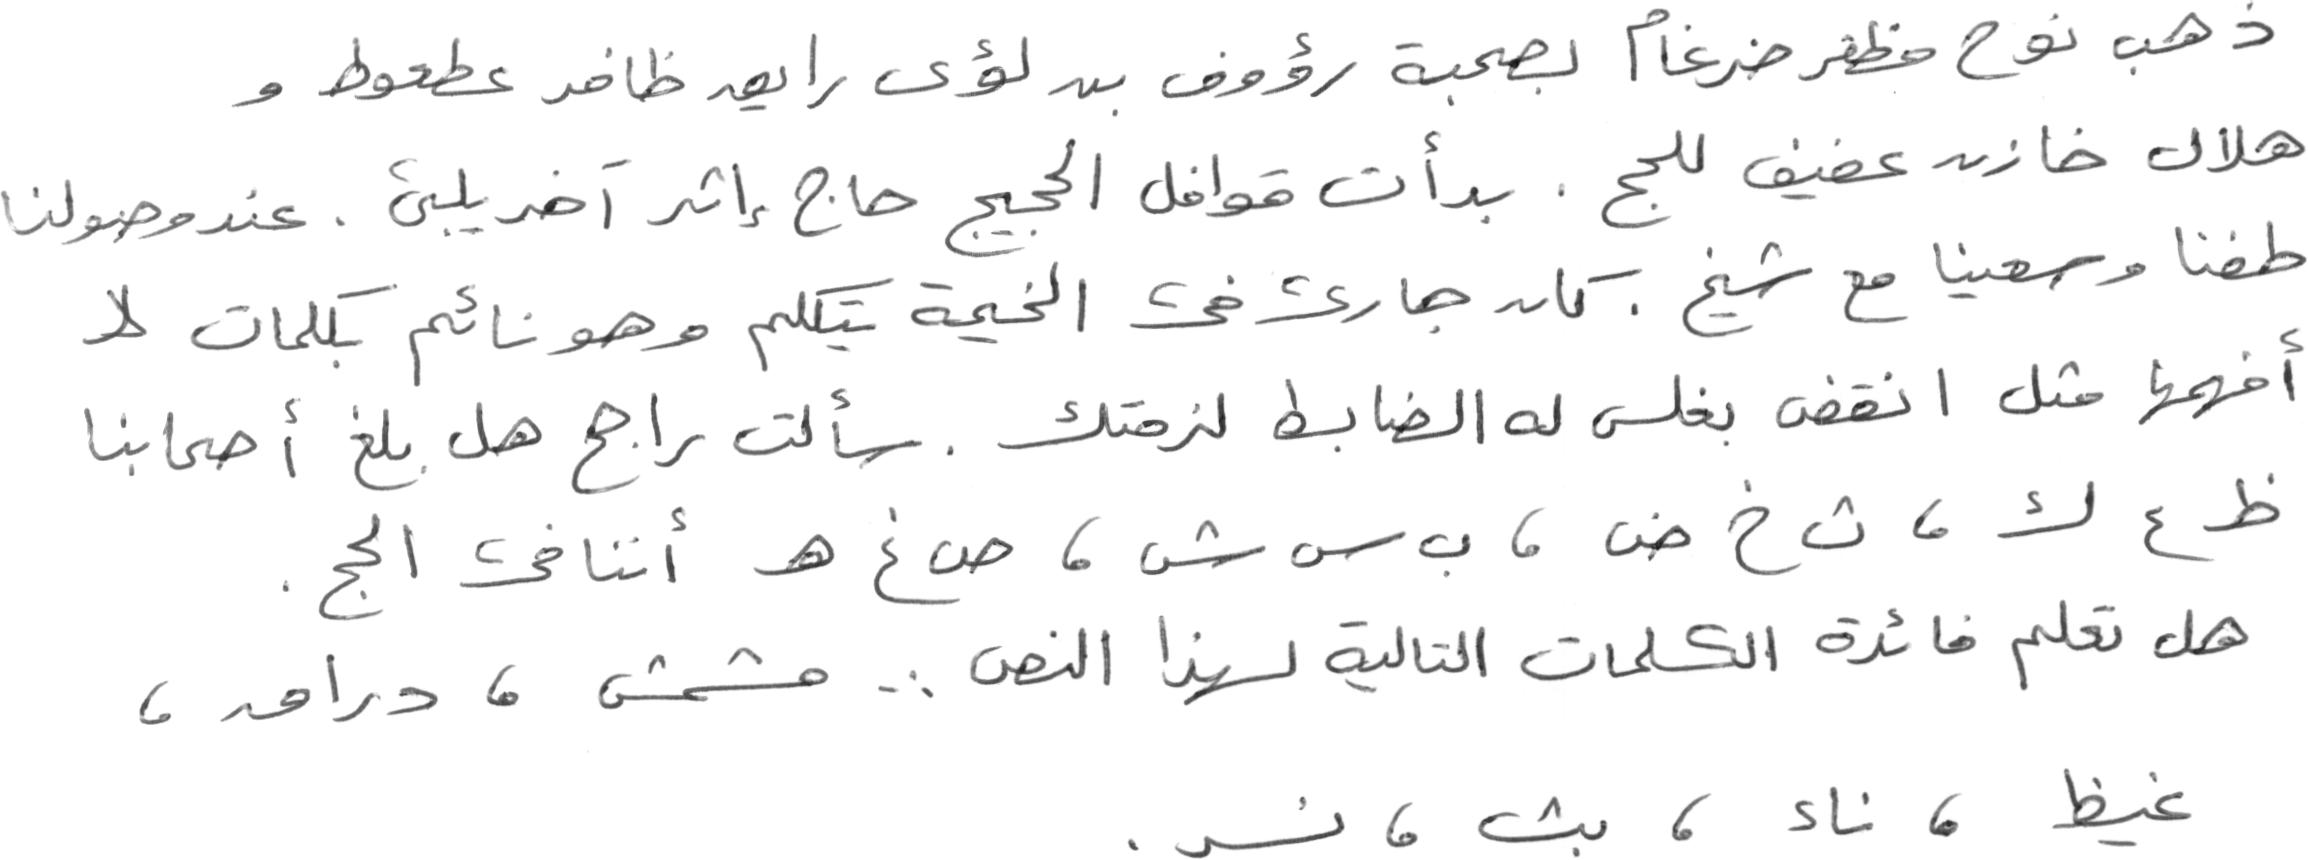 ذهب نوح مظفر ضرغام بصحبة رؤوف بن لؤى رايق ظافر عطعوط و
هلال خازن عفيف للحج . بدأت قوافل الحجيج حاج إثر آخر يلبى . عند وصولنا
طفنا وسعينا مع شيخ . كان جارى فى الخيمة يتكلم وهو نائم بكلمات لا
أفهمها مثل انقض بغلس له الضابط لزمتك . سألت راجح هل بلغ أصحابنا
ظ ع ك ، ث خ ض ، ب س ش ، ص غ هـ أننا فى الحج .
هل تعلم فائدة الكلمات التالية لهذا النص :.. مشمش ، دراق ،
غيظ ، ناء ، بث ، نسر .